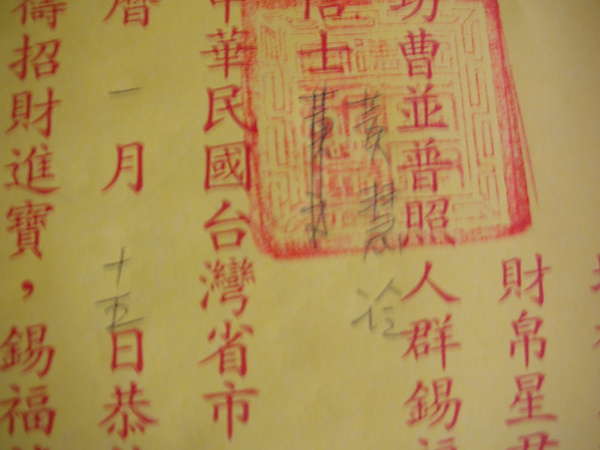 財帛星君
功曹並普照人群錫福
黃慧
信士黃
中華民國台灣省市
曆一月十五日恭
禱招財進寶，錫福